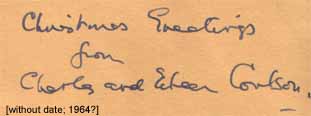 Christmas Greetings
from
Charles and Eileen Coulson.
[without date; 1964?]